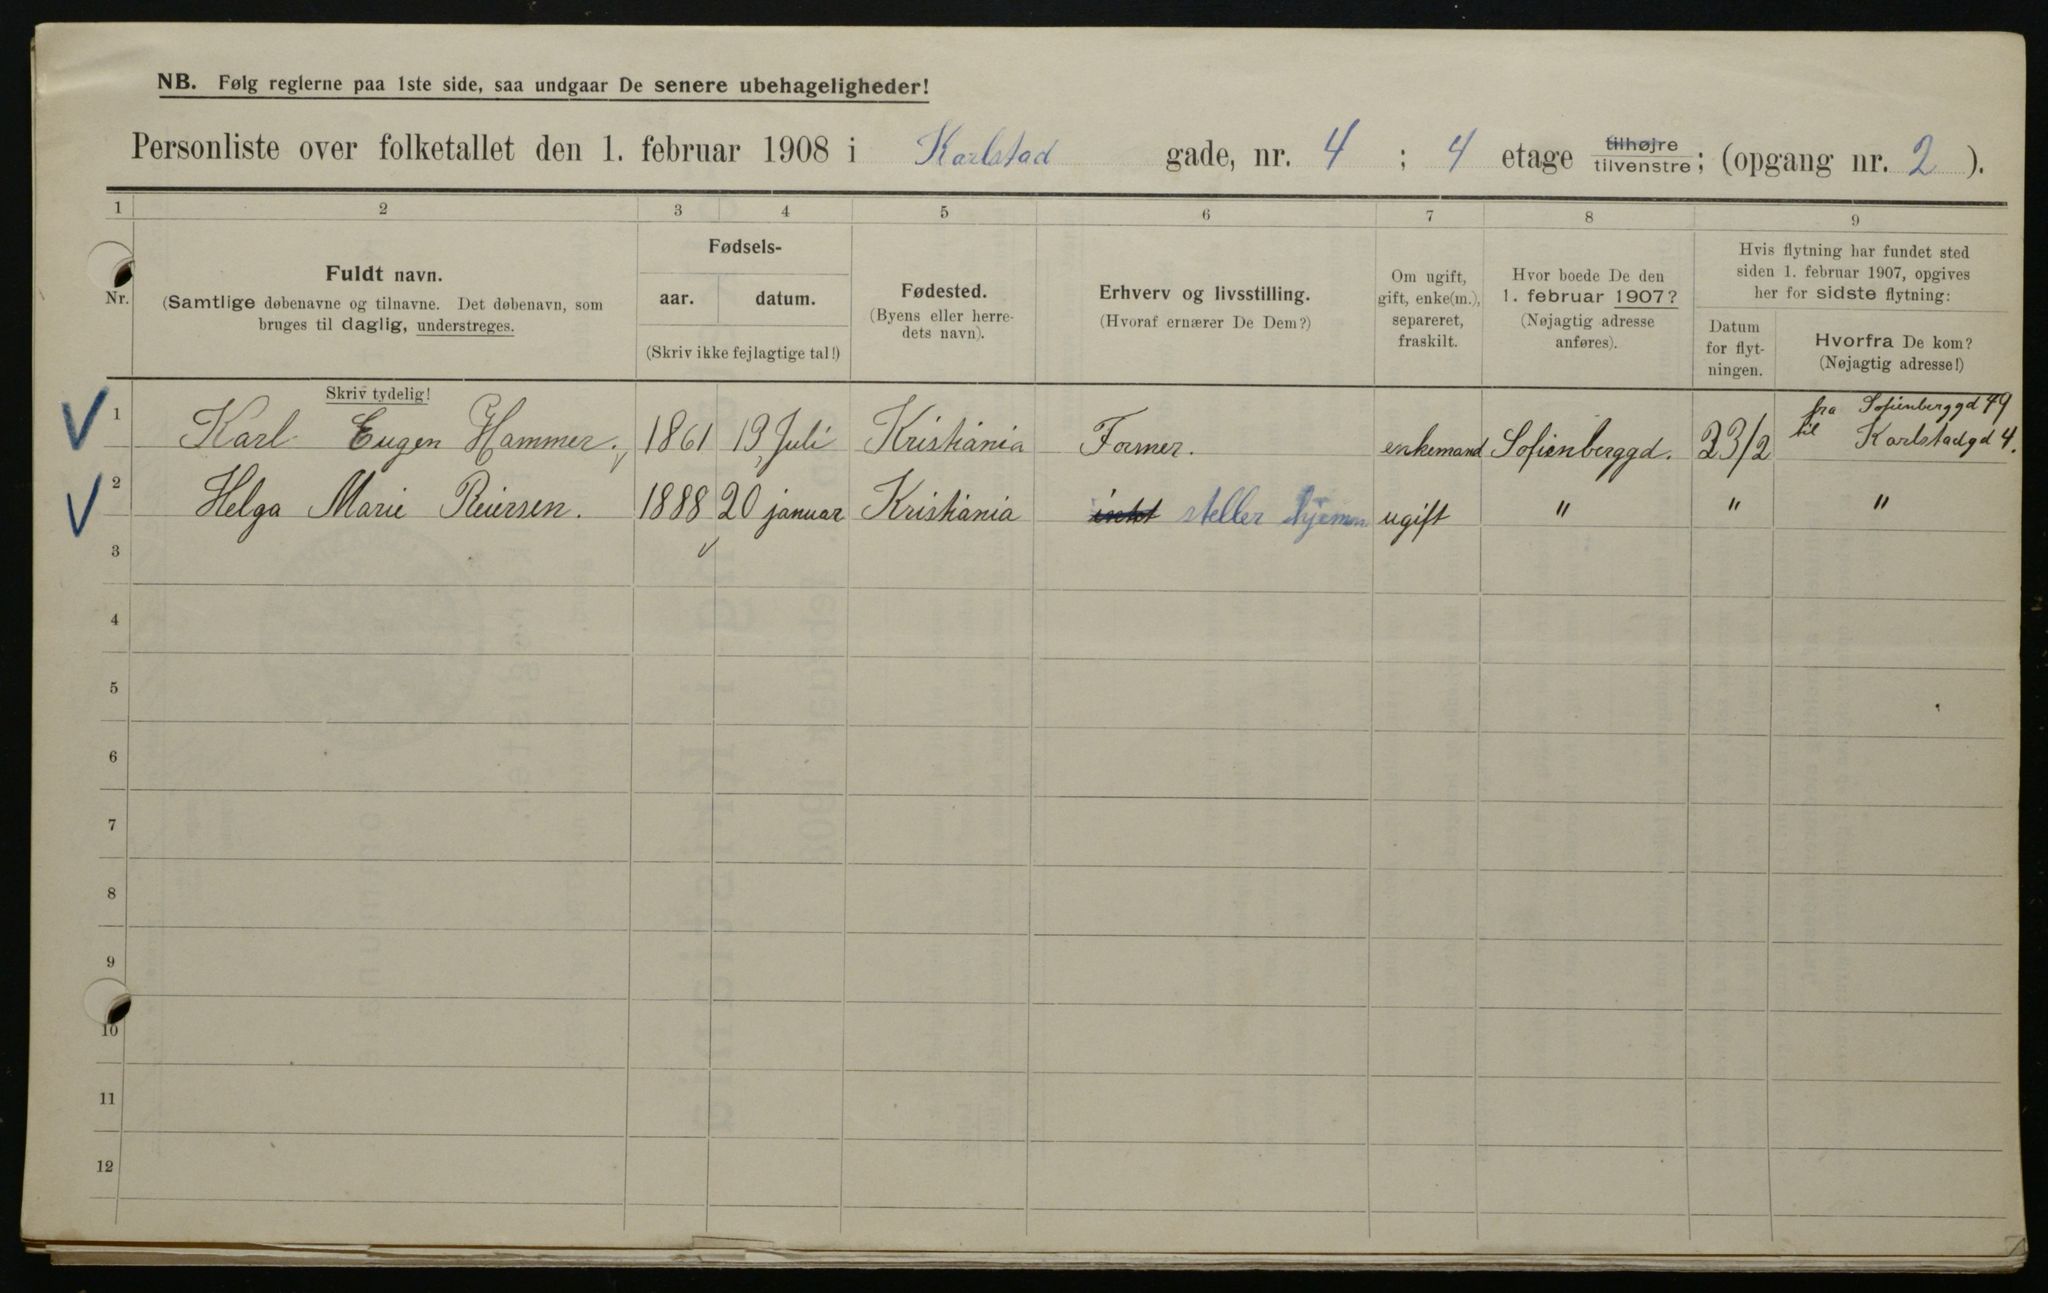 NB. Følg reglerne paa 1ste side, saa undgaar De senere ubehageligheder!
Personliste over folketallet den 1. februar 1908 i Karlstad gade, nr. 4 ; 4 etage tilhøjre tilvenstre ; (opgang nr. 2 ).
1 2 3 4 5 6 7 8 9
Nr.
Fuldt navn.
(Samtlige døbenavne og tilnavne. Det døbenavn, som
bruges til daglig, understreges.
Fødsels-
aar. datum.
(Skriv ikke fejlagtige tal!)
Fødested.
(Byens eller herre-
dets navn).
Erhverv og livsstilling.
(Hvoraf ernærer De Dem?)
Om ugift,
gift, enke(m.),
separeret,
fraskilt.
Hvor boede De den
1. februar 1907?
(Nøjagtig adresse
anføres).
Hvis flytning har fundet sted
siden 1. februar 1907, opgives
her for sidste flytning:
Datum
for flyt-
ningen.
Hvorfra De kom?
(Nøjagtig adresse!)
Skriv tydelig!
fra Sofienberggd 49
1 Karl Eugen Hammer. 1861 19 Juli Kristiania Former. enkemand Sofienberggd. 23/2 til Karlstadgd 4.
2 Helga Marie Reiersen. 1888 20 januar Kristiania intet steller hjemm ugift " " "
3
4
5
6
7
8
9
10
11
12